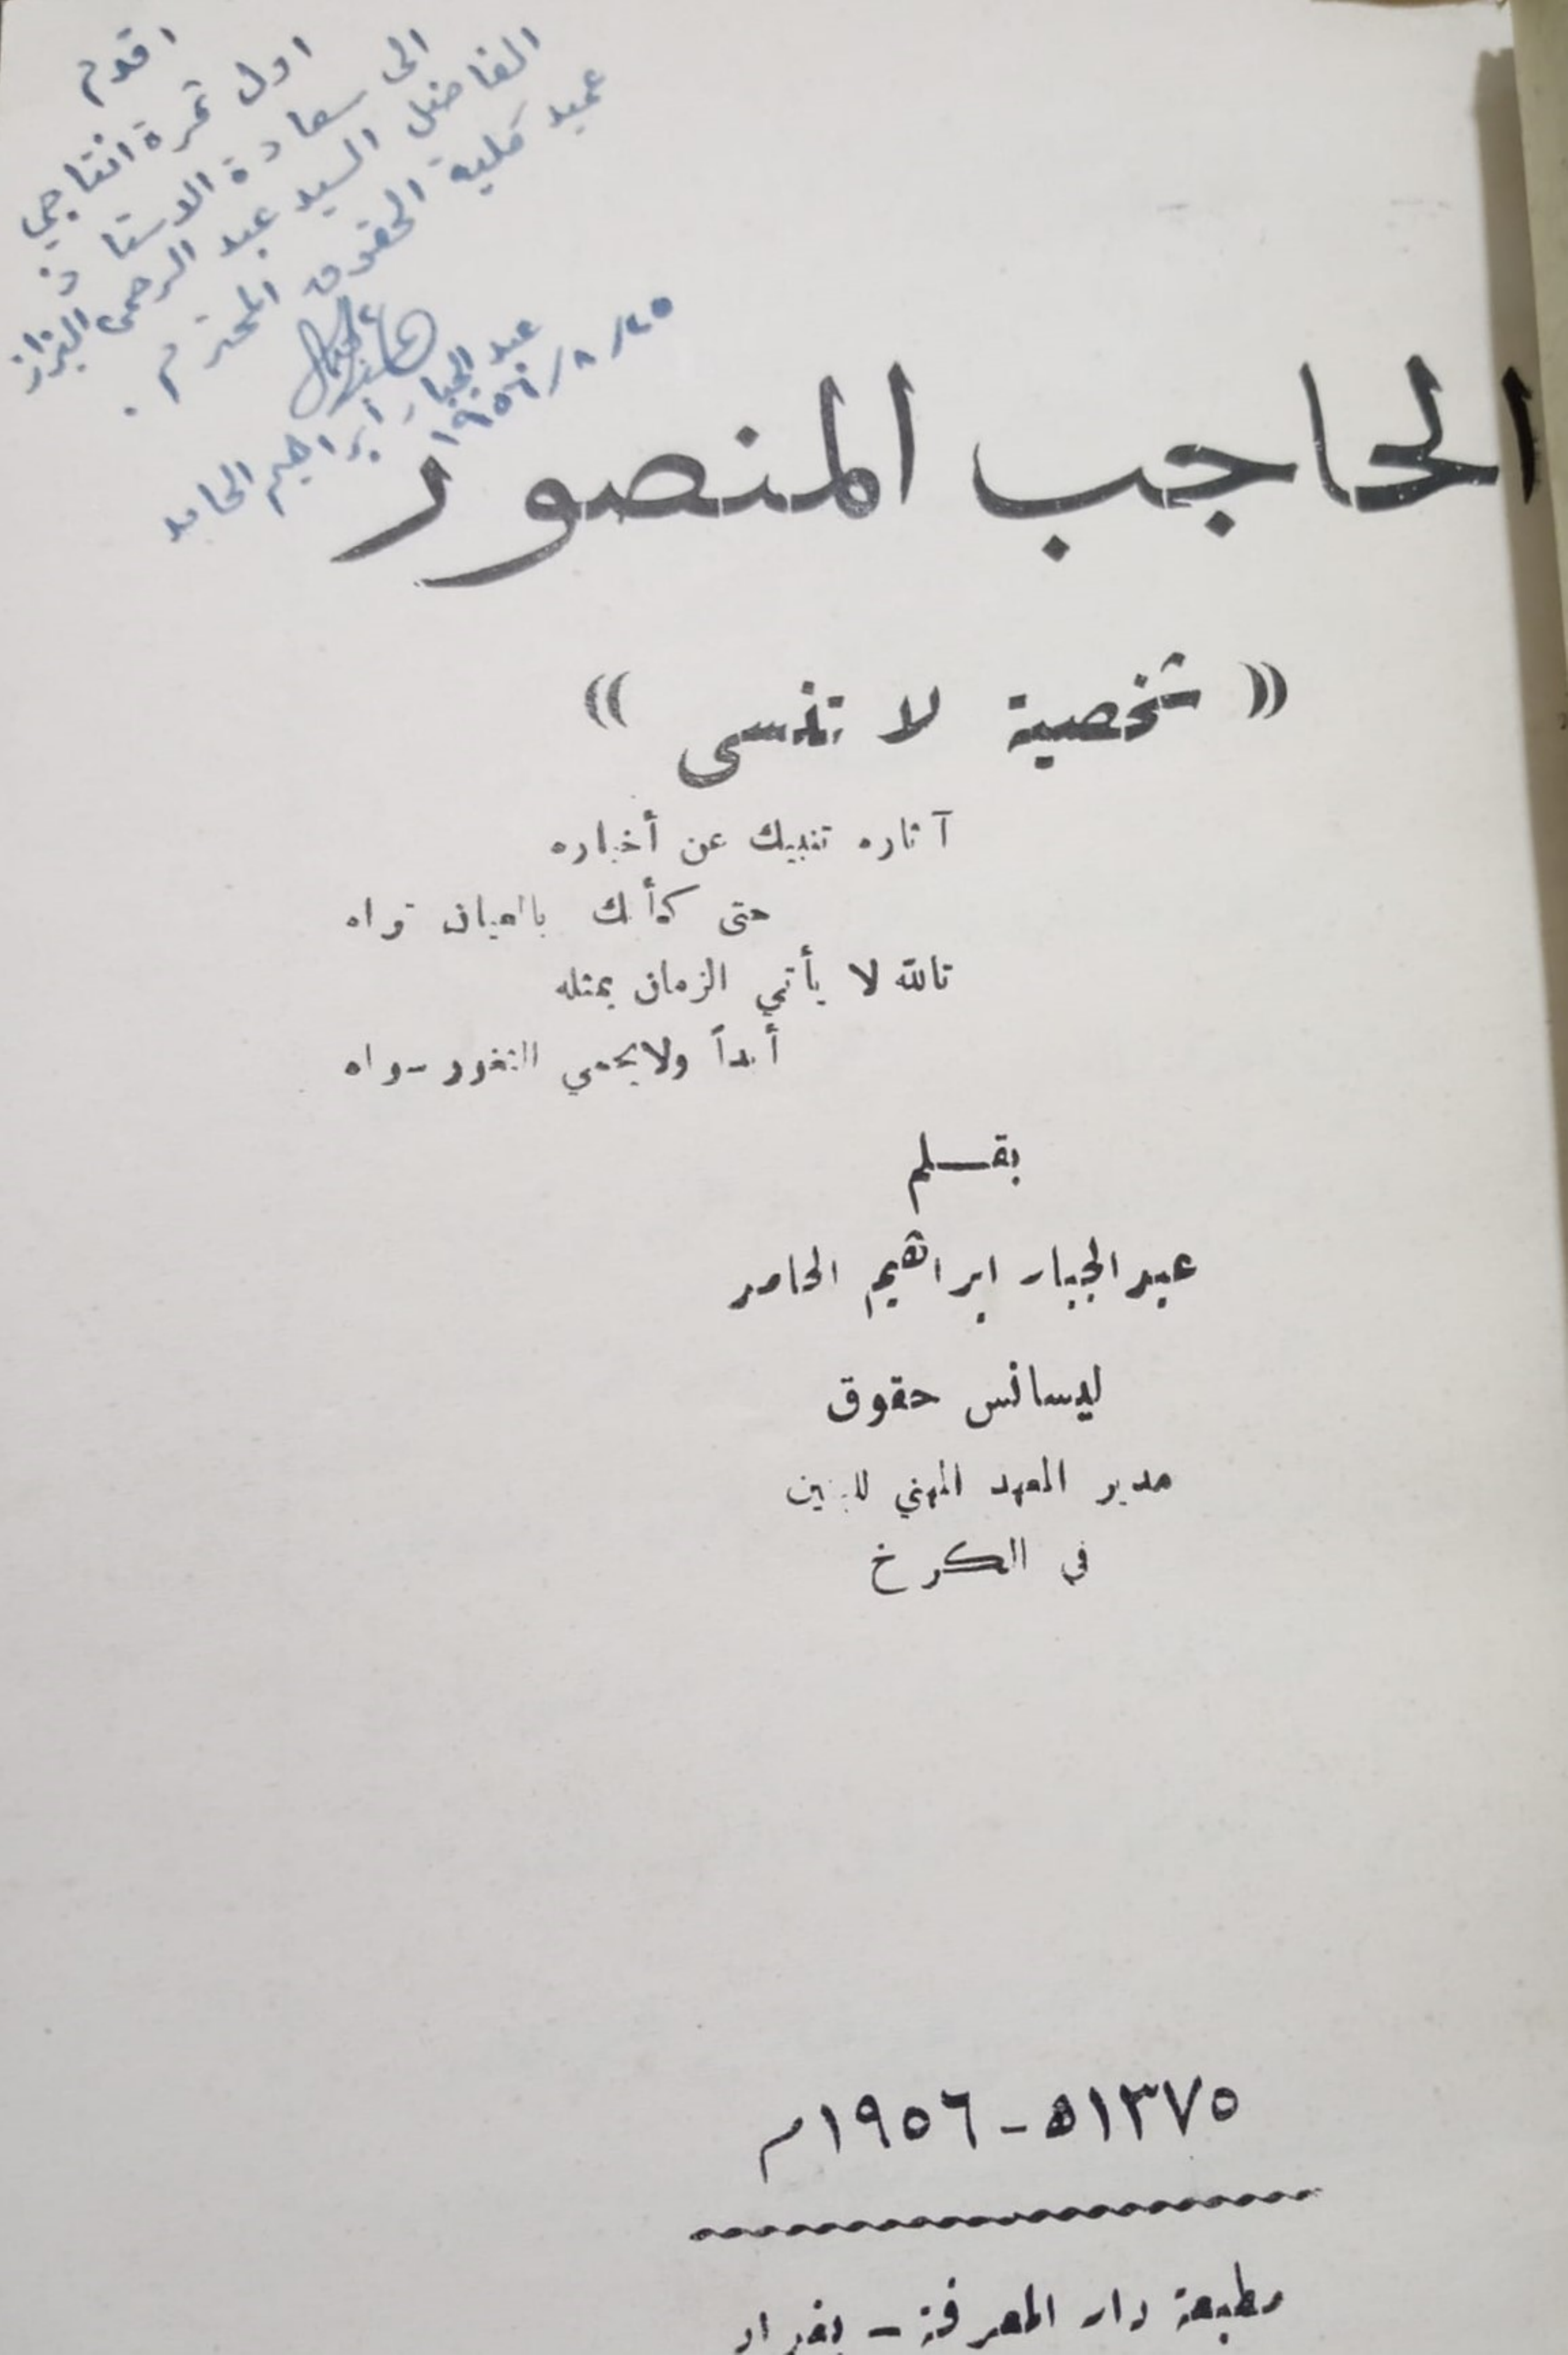 اقدم
اول ثمرة انتاجي
الى سعادة الاستاذ
الفاضل السيد عبد الرحمن البزاز
عميد كلية الحقوق المحترم .
عبد الجبار ابراهيم الحامد
٢٥/٨/١٩٥٦
الحاجب المنصور
« شخصية لا تنسى »
آثاره تنبيك عن أخباره
حتى كأنك بالعيان تراه
تالله لا يأتي الزمان بمثله
أبداً ولا يحمي الثغور سواه
بقـــلم
عبد الجبار ابراهيم الحامد
ليسانس حقوق
مدير المعهد المهني للبنين
في الكرخ
١٣٧٥هـ - ١٩٥٦م
مطبعة دار المعرفة - بغداد